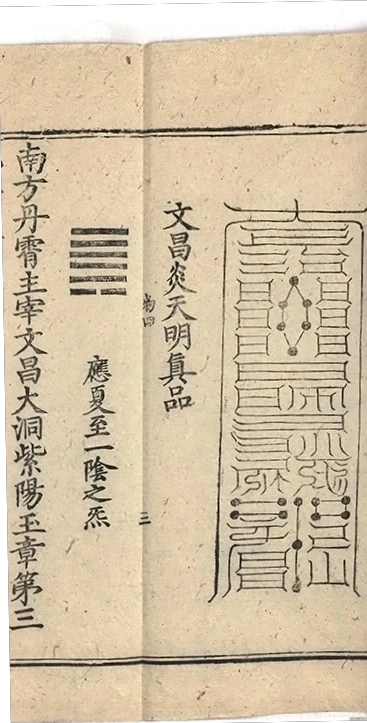 文昌炎天明眞品
三
應夏至一陰之炁
南方丹霄主宰文昌大洞紫陽玉章第三